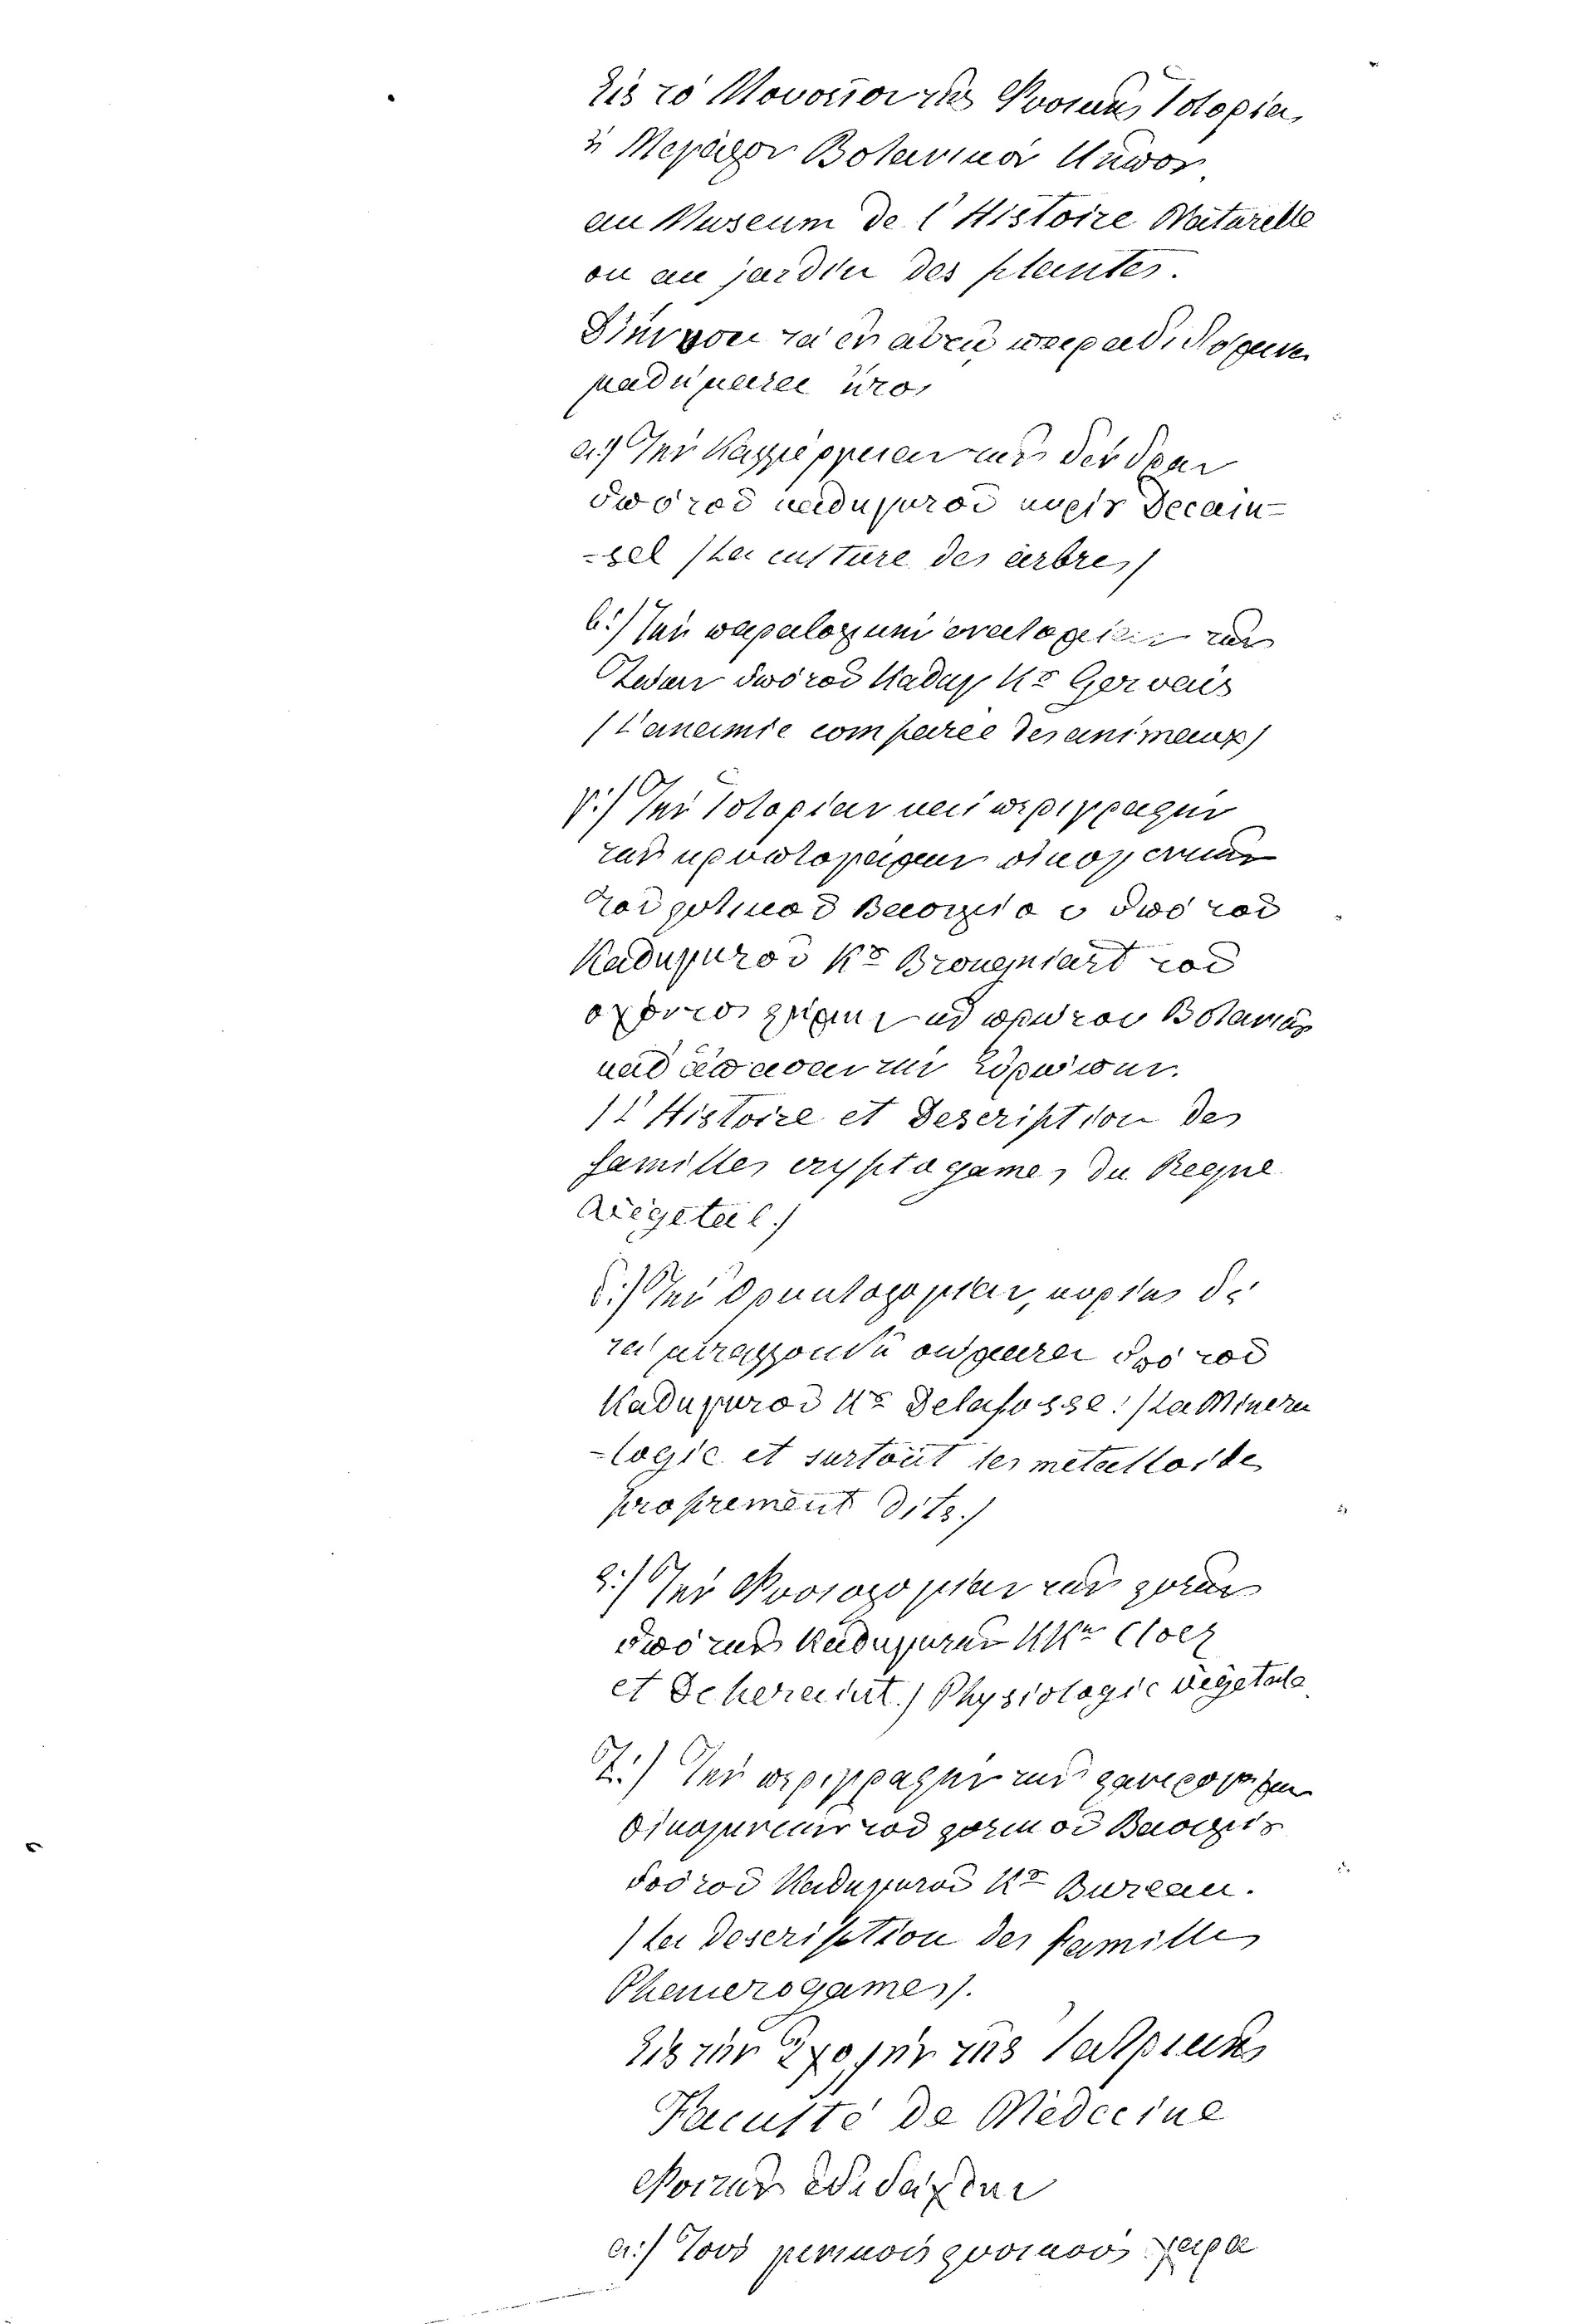 Εἰς τὸ Μουσεῖον τῆς Φυσικῆς Ἱστορίας
ἢ Μεγάλον Βοτανικὸν Κῆπον.
au Museum de l'Histoire Naturelle
ou au jardin des plantes.
Διήκουσα τὰ ἐν αὐτῷ παραδιδόμενα
μαθήματα ἤτοι
α:) Τὴν Καλλιέργειαν τῶν δένδρων
ὑπὸ τοῦ καθηγητοῦ κυρίου Decain-
-sel (La culture des arbres)
β:) Τὴν παραλογικὴν ἀνατομίαν τῶν
ζώων ὑπὸ τοῦ Καθηγ Κου Gervais
(L'anatmie comparee des animaux)
γ:) Τὴν Ἱστορίαν καὶ περιγραφὴν
τῶν κρυπτογάμων οἰκογενειῶν
τοῦ φυτικοῦ Βασιλείου ὑπὸ τοῦ
Καθηγητοῦ Κου Brongniart τοῦ
πρώτου Βοτανικοῦ
καθ' ἅπασαν τὴν Εὐρώπην.
(L'Histoire et Description des
familles cryptogames du Regne
Vegetal.)
δ:) Τὴν Ὀρυκτολογίαν, κυρίως δὲ
τὰ μεταλλοειδῆ σώματα ὑπὸ τοῦ
Καθηγητοῦ Κου Delafosse: (La Minera
-logie et surtout les metalloide
proprement dits.)
ε:) Τὴν Φυσιολογίαν τῶν φυτῶν
ὑπὸ τῶν Καθηγητῶν ΚΚων Cloez
et Deheraint.) Physiologie vegetale
Ζ:) Τὴν περιγραφὴν τῶν φανερογάμων
Οἰκογενειῶν τοῦ φυτικοῦ Βασιλείου
ὑπὸ τοῦ Καθηγητοῦ Κου Bureau.
(La Description des famille
Phanerogames).
Εἰς τὴν Σχολὴν τῆς Ἰατρικῆς
Faculté de Médecine
Φοιτῶν ἐδιδάχθην
α:) Τοὺς γενικοὺς φυσικοὺς χαρα